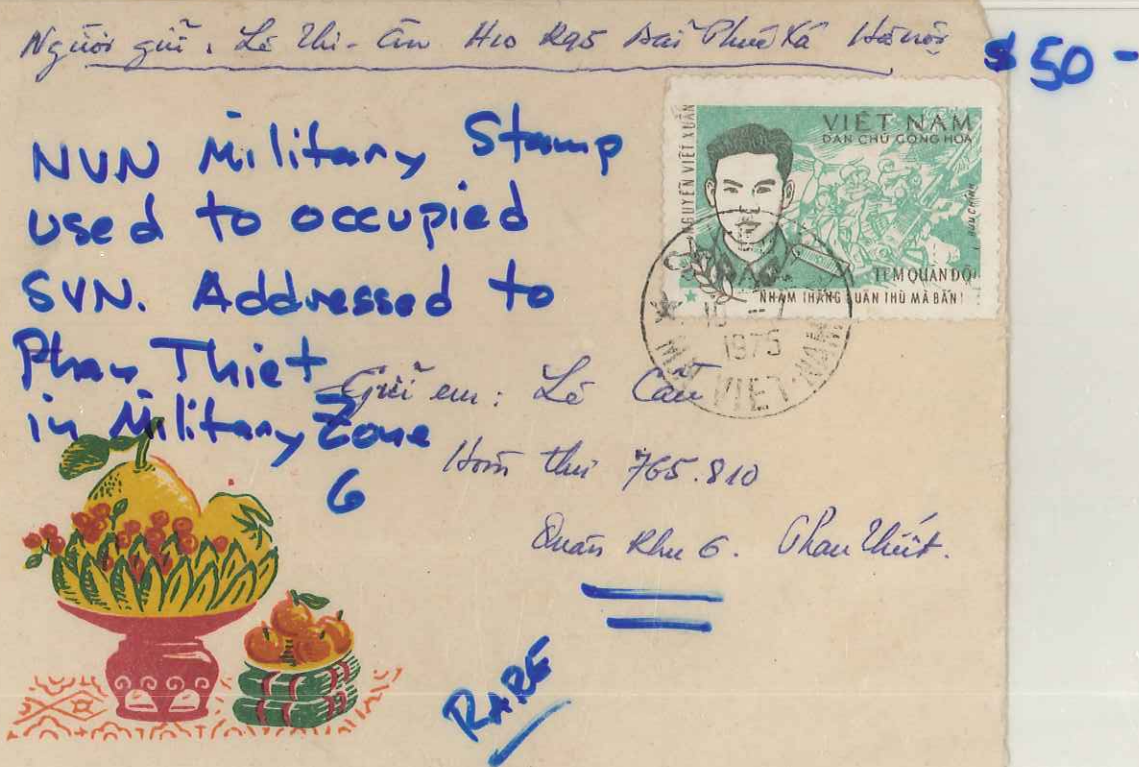 Người gửi: Lê Thi-Ân H10 R95 Hà nội
$50-
NVN Military Stamp
used to occupied
SVN. Addressed to
Phan Thiet
in Military Zone
6
NGUYỄN VIẾT XUÂN
VIỆT NAM
DÂN CHỦ CỘNG HÒA
TEM QUÂN ĐỘI
NHẰM THẲNG QUÂN THÙ MÀ BẮN!
1975
VIET-NAM
Gửi em: Lê Cần
Hòm thư 765.810
Quân khu 6. Phan Thiết.
RARE